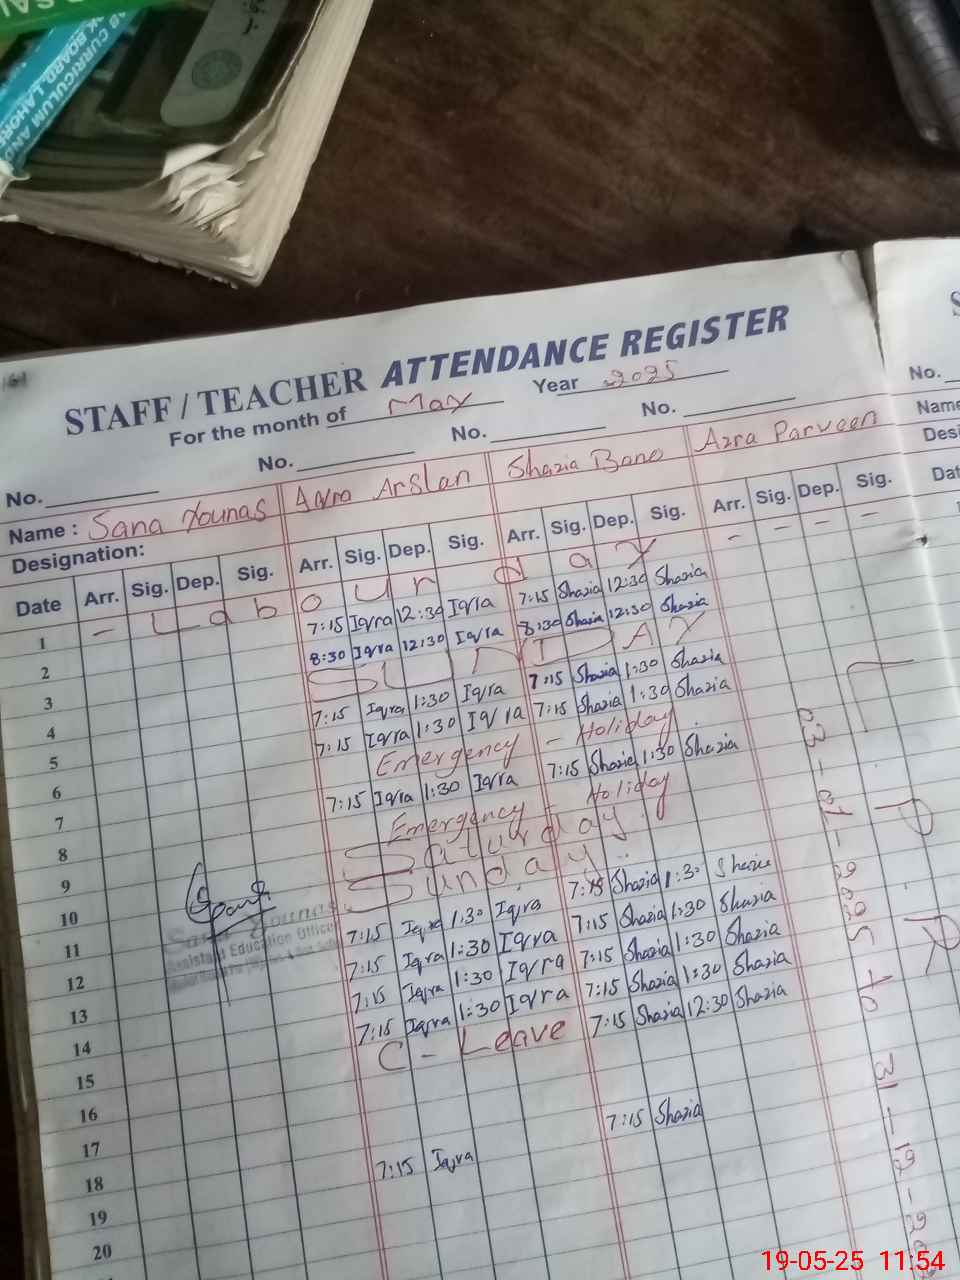 SAL
CURRICULUM AND
K BOARD, LAHORE
161
STAFF / TEACHER ATTENDANCE REGISTER
For the month of May Year 2025
No. No. No. No.
Name : Sana Younas Iqra Arslan Shazia Bano Azra Parveen
Designation:
Date Arr. Sig. Dep. Sig. Arr. Sig. Dep. Sig. Arr. Sig. Dep. Sig. Arr. Sig. Dep. Sig.
1 - Labour day - - - -
2 7:15 Iqra 12:30 Iqra 7:15 Shazia 12:30 Shazia
3 8:30 Iqra 12:30 Iqra 8:30 Shazia 12:30 Shazia
4 SUNDAY
5 7:15 Iqra 1:30 Iqra 7:15 Shazia 1:30 Shazia
6 7:15 Iqra 1:30 Iqra 7:15 Shazia 1:30 Shazia
7 Emergency - Holiday
8 7:15 Iqra 1:30 Iqra 7:15 Shazia 1:30 Shazia
9 Emergency - Holiday
10 Saturday
11 Sunday
12 7:15 Iqra 1:30 Iqra 7:15 Shazia 1:30 Shazia
13 7:15 Iqra 1:30 Iqra 7:15 Shazia 1:30 Shazia
14 7:15 Iqra 1:30 Iqra 7:15 Shazia 1:30 Shazia
15 7:15 Iqra 1:30 Iqra 7:15 Shazia 1:30 Shazia
16 C - Leave 7:15 Shazia 12:30 Shazia
17
18
19 7:15 Iqra 7:15 Shazia
20
Sana Younas
Assistant Education Officer
L.P.R
03-01-2025 to 31-12-20
S
No.
Name
Desi
Dat
19-05-25 11:54